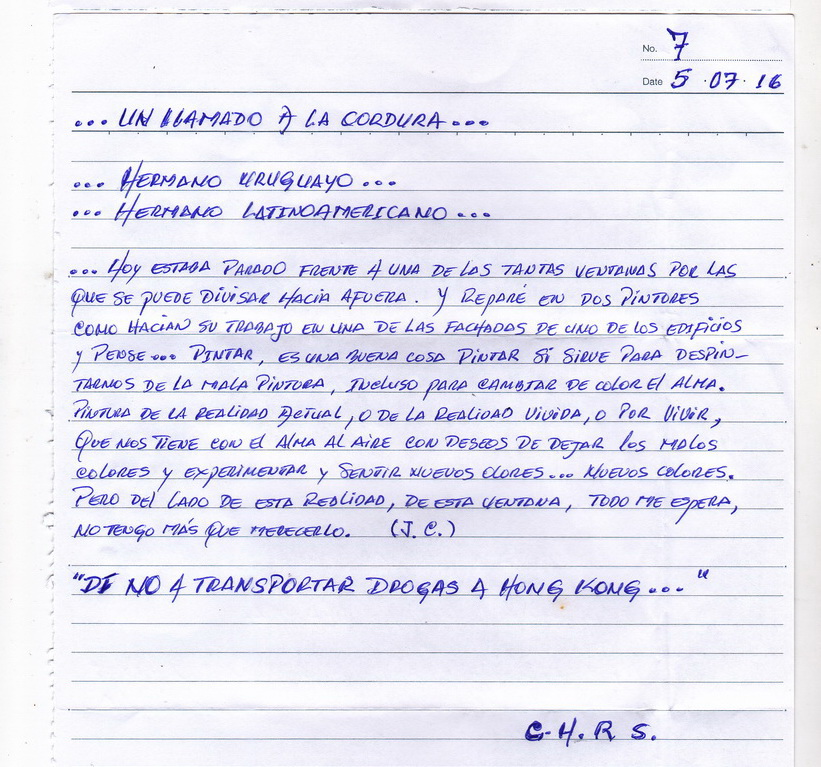 No. 7
Date 5 · 07 · 16
... UN LLAMADO A LA CORDURA ...
... HERMANO URUGUAYO ...
... HERMANO LATINOAMERICANO ...
... HOY ESTABA PARADO FRENTE A UNA DE LAS TANTAS VENTANAS POR LAS
QUE SE PUEDE DIVISAR HACIA AFUERA. Y REPARÉ EN DOS PINTORES
COMO HACIAN SU TRABAJO EN UNA DE LAS FACHADAS DE UNO DE LOS EDIFICIOS
Y PENSE... PINTAR, ES UNA BUENA COSA PINTAR SI SIRVE PARA DESPIN-
TARNOS DE LA MALA PINTURA, INCLUSO PARA CAMBIAR DE COLOR El ALMA.
PINTURA DE LA REALIDAD ACTUAL, O DE LA REALIDAD VIVIDA, O POR VIVIR,
QUE NOS TIENE CON El ALMA AL AIRE CON DESEOS DE DEJAR los MALOS
COLORES Y EXPERIMENTAR Y SENTIR NUEVOS OLORES... NUEVOS COLORES.
PERO DEL LADO DE ESTA REALIDAD, DE ESTA VENTANA, TODO ME ESPERA,
NO TENGO MÁS QUE MERECERLO. (J. C.)
"DI NO A TRANSPORTAR DROGAS A HONG KONG..."
C-H. R S.